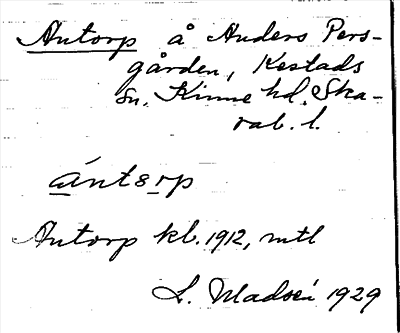 Antorp å Anders Pers-
gården, Kestads
sn. Kinne hd. Ska-
rab. l.
ántȣrp
Antorp kl. 1912, mtl
L. Madsén 1929